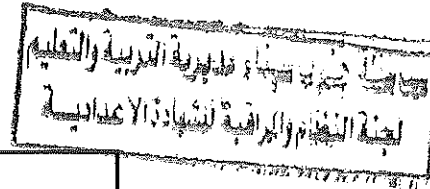 محافظة جنوب سيناء مديرية التربية والتعليم
لجنة النظام والمراقبة لشهادة الاعدادية